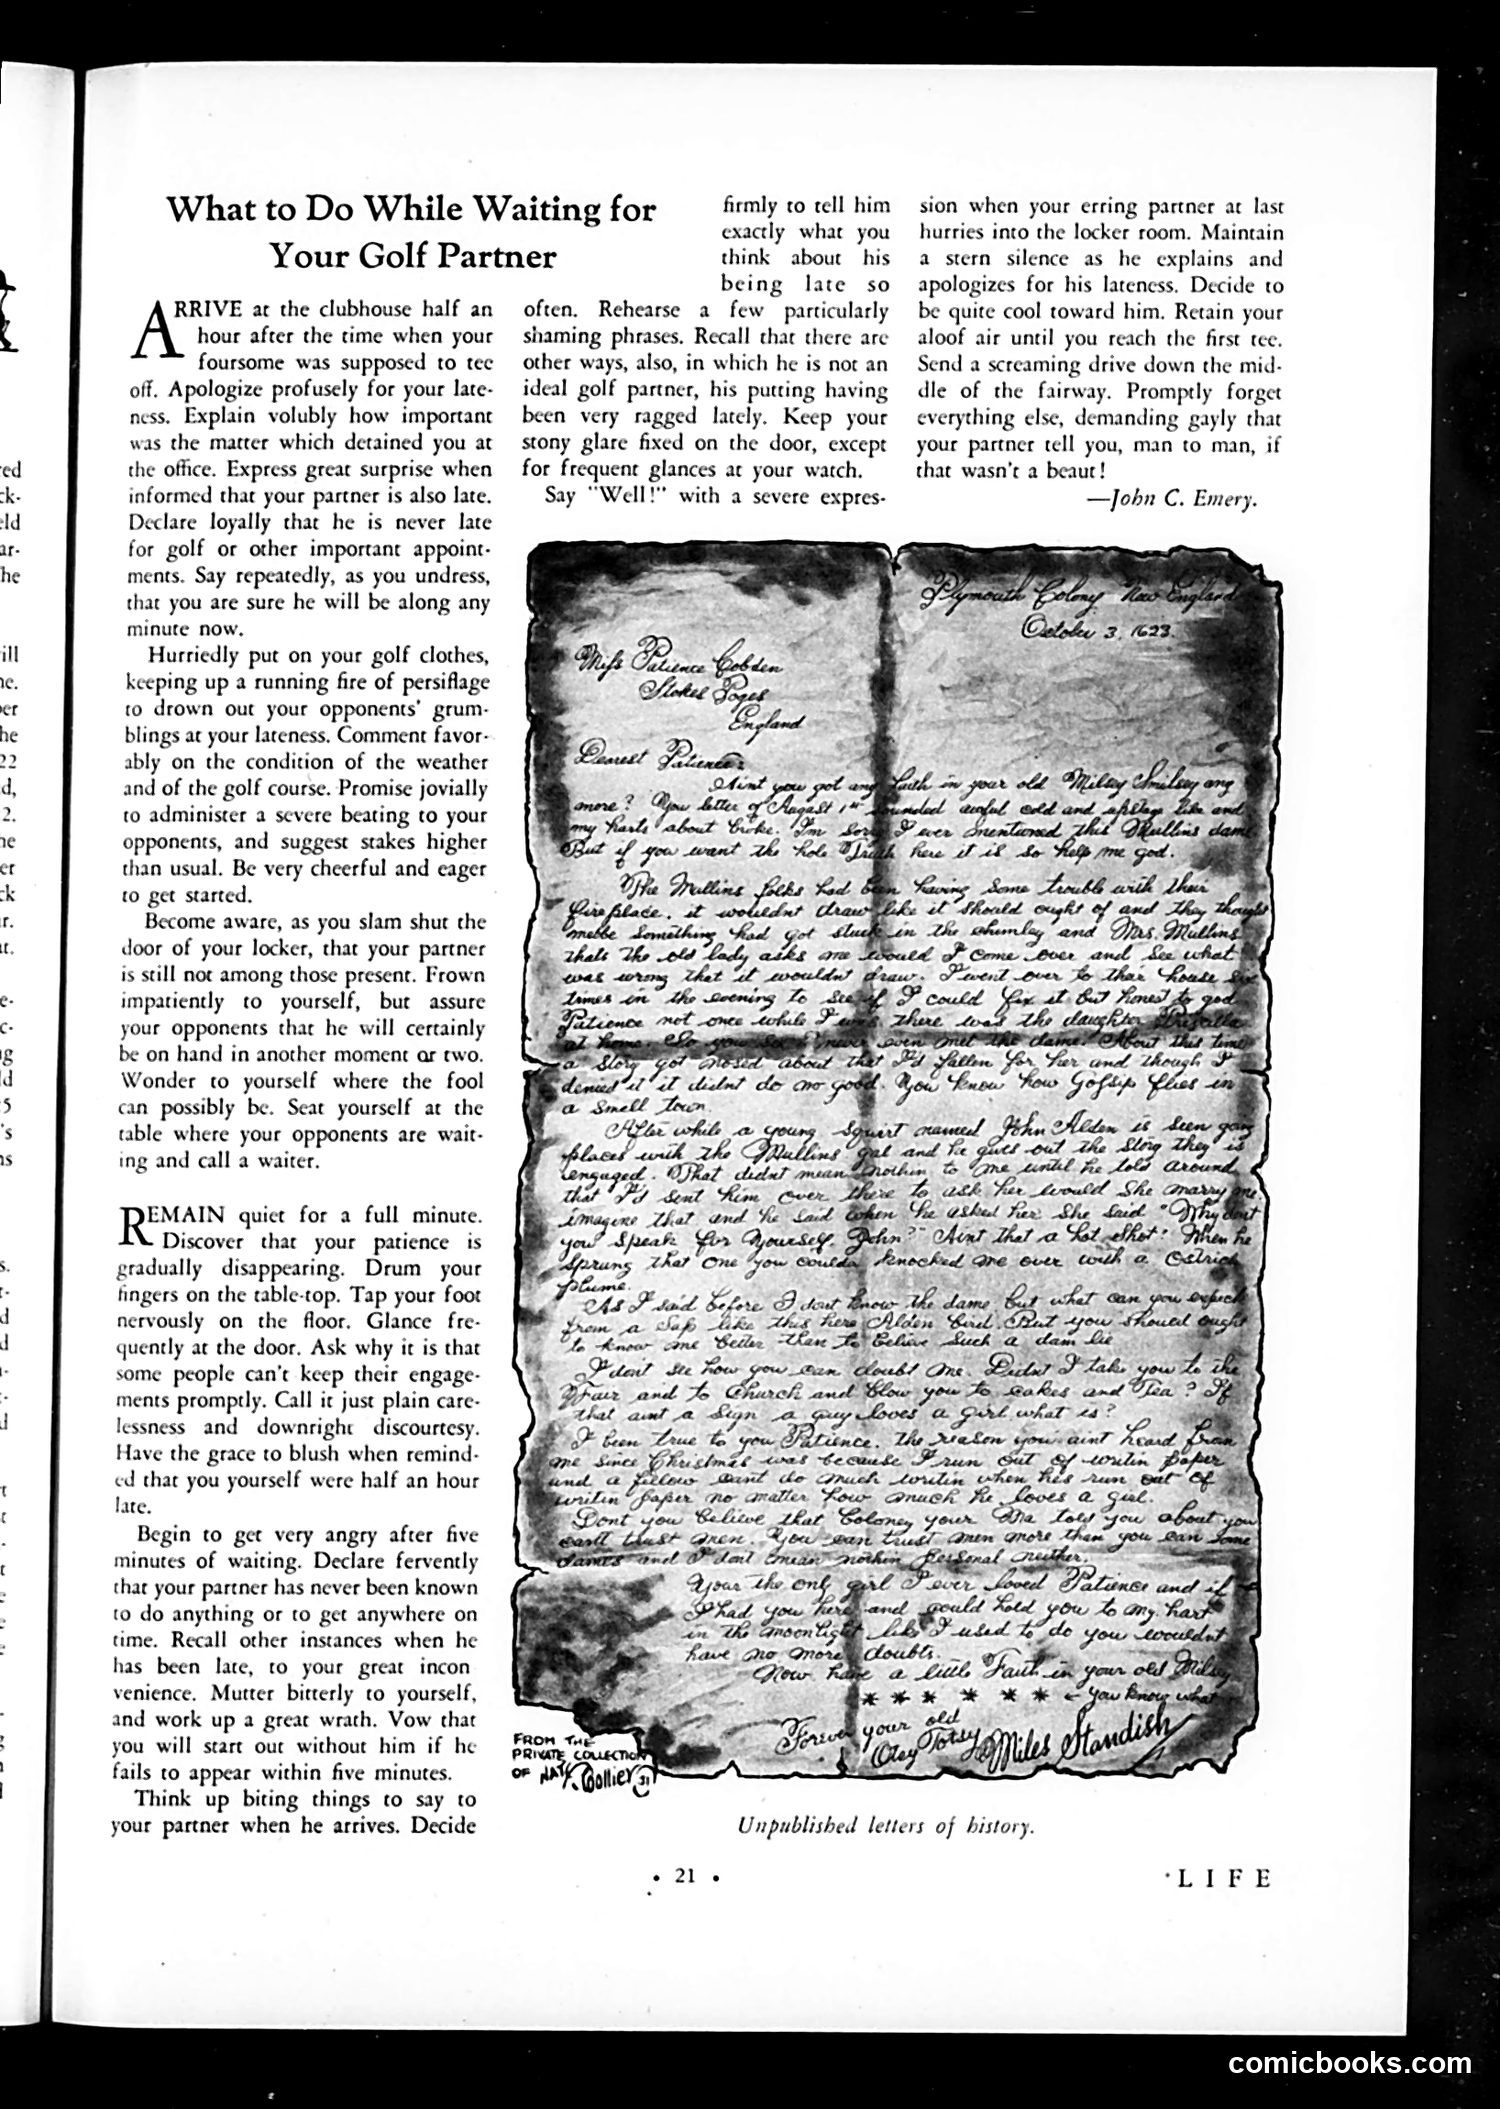 What to Do While Waiting for
Your Golf Partner
ARRIVE at the clubhouse half an
hour after the time when your
foursome was supposed to tee
off. Apologize profusely for your late-
ness. Explain volubly how important
was the matter which detained you at
the office. Express great surprise when
informed that your partner is also late.
Declare loyally that he is never late
for golf or other important appoint-
ments. Say repeatedly, as you undress,
that you are sure he will be along any
minute now.
Hurriedly put on your golf clothes,
keeping up a running fire of persiflage
to drown out your opponents' grum-
blings at your lateness. Comment favor-
ably on the condition of the weather
and of the golf course. Promise jovially
to administer a severe beating to your
opponents, and suggest stakes higher
than usual. Be very cheerful and eager
to get started.
Become aware, as you slam shut the
door of your locker, that your partner
is still not among those present. Frown
impatiently to yourself, but assure
your opponents that he will certainly
be on hand in another moment or two.
Wonder to yourself where the fool
can possibly be. Seat yourself at the
table where your opponents are wait-
ing and call a waiter.
REMAIN quiet for a full minute.
Discover that your patience is
gradually disappearing. Drum your
fingers on the table-top. Tap your foot
nervously on the floor. Glance fre-
quently at the door. Ask why it is that
some people can't keep their engage-
ments promptly. Call it just plain care-
lessness and downright discourtesy.
Have the grace to blush when remind-
ed that you yourself were half an hour
late.
Begin to get very angry after five
minutes of waiting. Declare fervently
that your partner has never been known
to do anything or to get anywhere on
time. Recall other instances when he
has been late, to your great incon
venience. Mutter bitterly to yourself,
and work up a great wrath. Vow that
you will start out without him if he
fails to appear within five minutes.
Think up biting things to say to
your partner when he arrives. Decide
firmly to tell him
exactly what you
think about his
being late so
often. Rehearse a few particularly
shaming phrases. Recall that there are
other ways, also, in which he is not an
ideal golf partner, his putting having
been very ragged lately. Keep your
stony glare fixed on the door, except
for frequent glances at your watch.
Say "Well!" with a severe expres-
sion when your erring partner at last
hurries into the locker room. Maintain
a stern silence as he explains and
apologizes for his lateness. Decide to
be quite cool toward him. Retain your
aloof air until you reach the first tee.
Send a screaming drive down the mid-
dle of the fairway. Promptly forget
everything else, demanding gayly that
your partner tell you, man to man, if
that wasn't a beaut!
—John C. Emery.
Plymouth Colony New England
October 3, 1623.
Miss Patience Cobden
Stokes Poges
England
Dearest Patience:
Aint you got any faith in your old Miley Smiley any
more? You letter of August 1st sounded awful cold and like and
my harts about broke. I'm sorry I ever mentioned this Mullins dame
But if you want the hole Truth here it is so help me god.
The Mullins folks had been having some trouble with their
fireplace. it wouldnt draw like it should ought of and they thought
mebbe something had got stuck in the chimley and Mrs. Mullins
thats the old lady asks me would I come over and see what
was wrong that it wouldnt draw. I went over to thar house six
times in the evening to see if I could fix it but honest to god
Patience not once while I was there was the daughter Priscilla
at home. So you see I never even met the dame. About this time
a story got nosed about that I'd fallen for her and though I
denied it it didnt do no good. You know how Gossip flies in
a small town.
After while a young squirt named John Alden is seen going
places with the Mullins gal and he gives out the story they is
engaged. That didnt mean nothin to me until he told around
that I'd sent him over there to ask her would she marry me.
imagine that and he said when he asked her she said "Why dont
you speak for Yourself, John?" Aint that a hot shot! When he
sprung that one you coulda knocked me over with a Ostrich
plume.
As I said before I dont know the dame but what can you expect
from a Sap like this here Alden bird. But you should ought
to know me better than to believe such a dam lie
I don't see how you can doubt me. Didnt I take you to the
Fair and to Church and blow you to cakes and Tea? If
that aint a sign a guy loves a girl what is?
I been true to you Patience. the reason you aint heard from
me since Christmas was because I run out of writin paper
and a fellow cant do much writin when hes run out of
writin paper no matter how much he loves a girl.
Dont you believe that boloney your Ma told you about you
cant trust men. You can trust men more than you can some
dames and I dont mean nothin personal neither.
Your the only girl I ever loved Patience and if
I had you here and could hold you to my hart
in the moonlight like I used to do you wouldnt
have no more doubts.
Now have a little Faith in your old Miley
* * * * * * ← you know what
Forever your old
Otsy Totsy Miles Standish
FROM THE
PRIVATE COLLECTION
OF NATE COLLIER 31
Unpublished letters of history.
• 21 •
LIFE
comicbooks.com